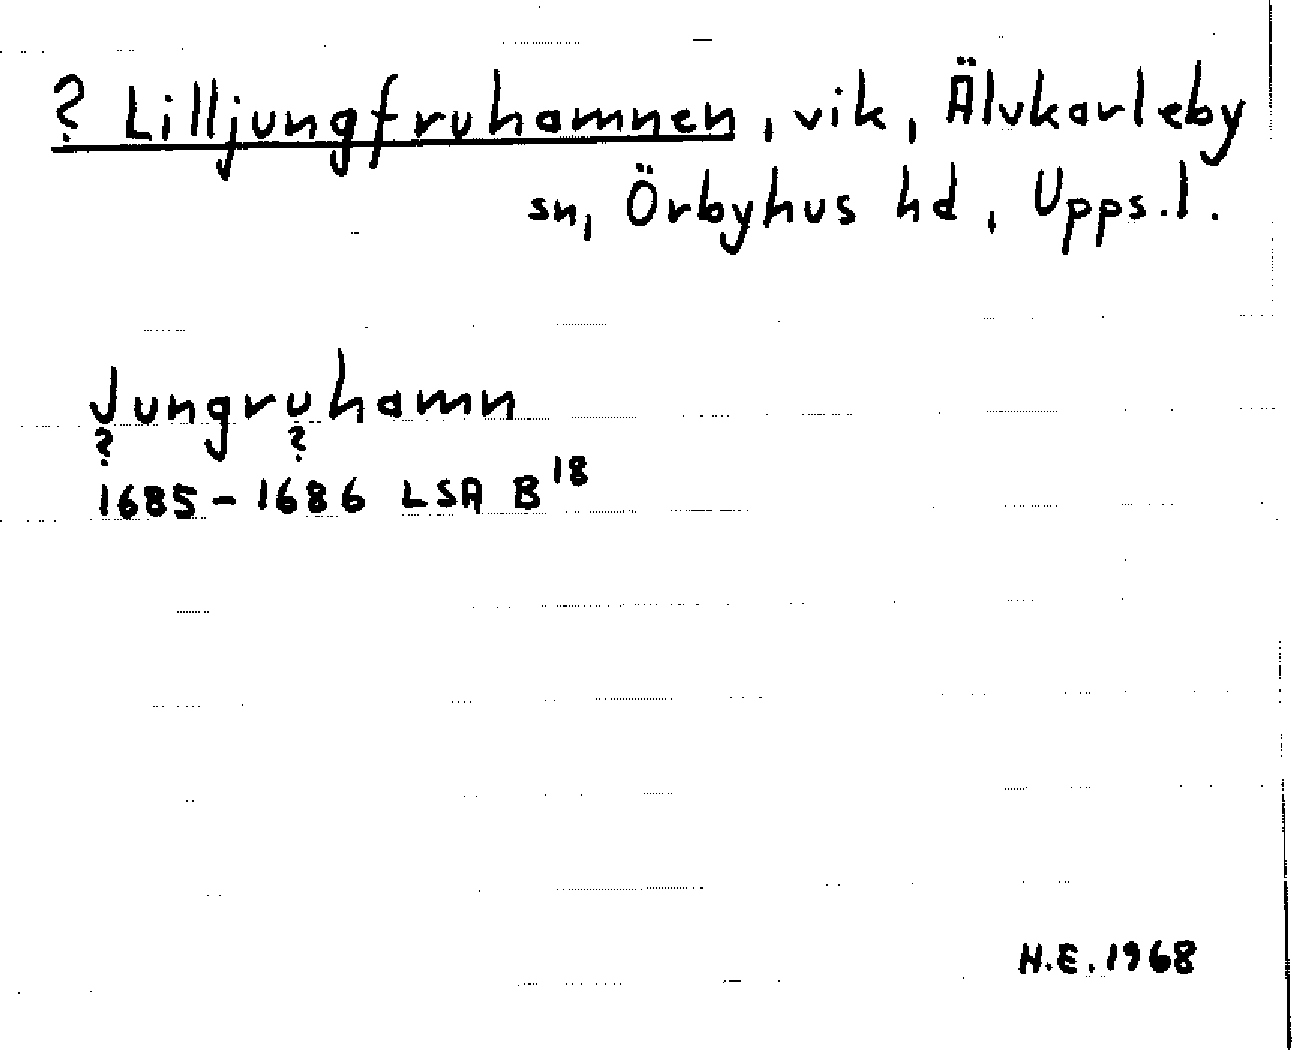 ? Lilljungfruhamnen, vik, Älvkarleby
sn, Örbyhus hd, Upps.l.
Jungruhamn
? ?
1685-1686 LSA B18
H.E. 1968